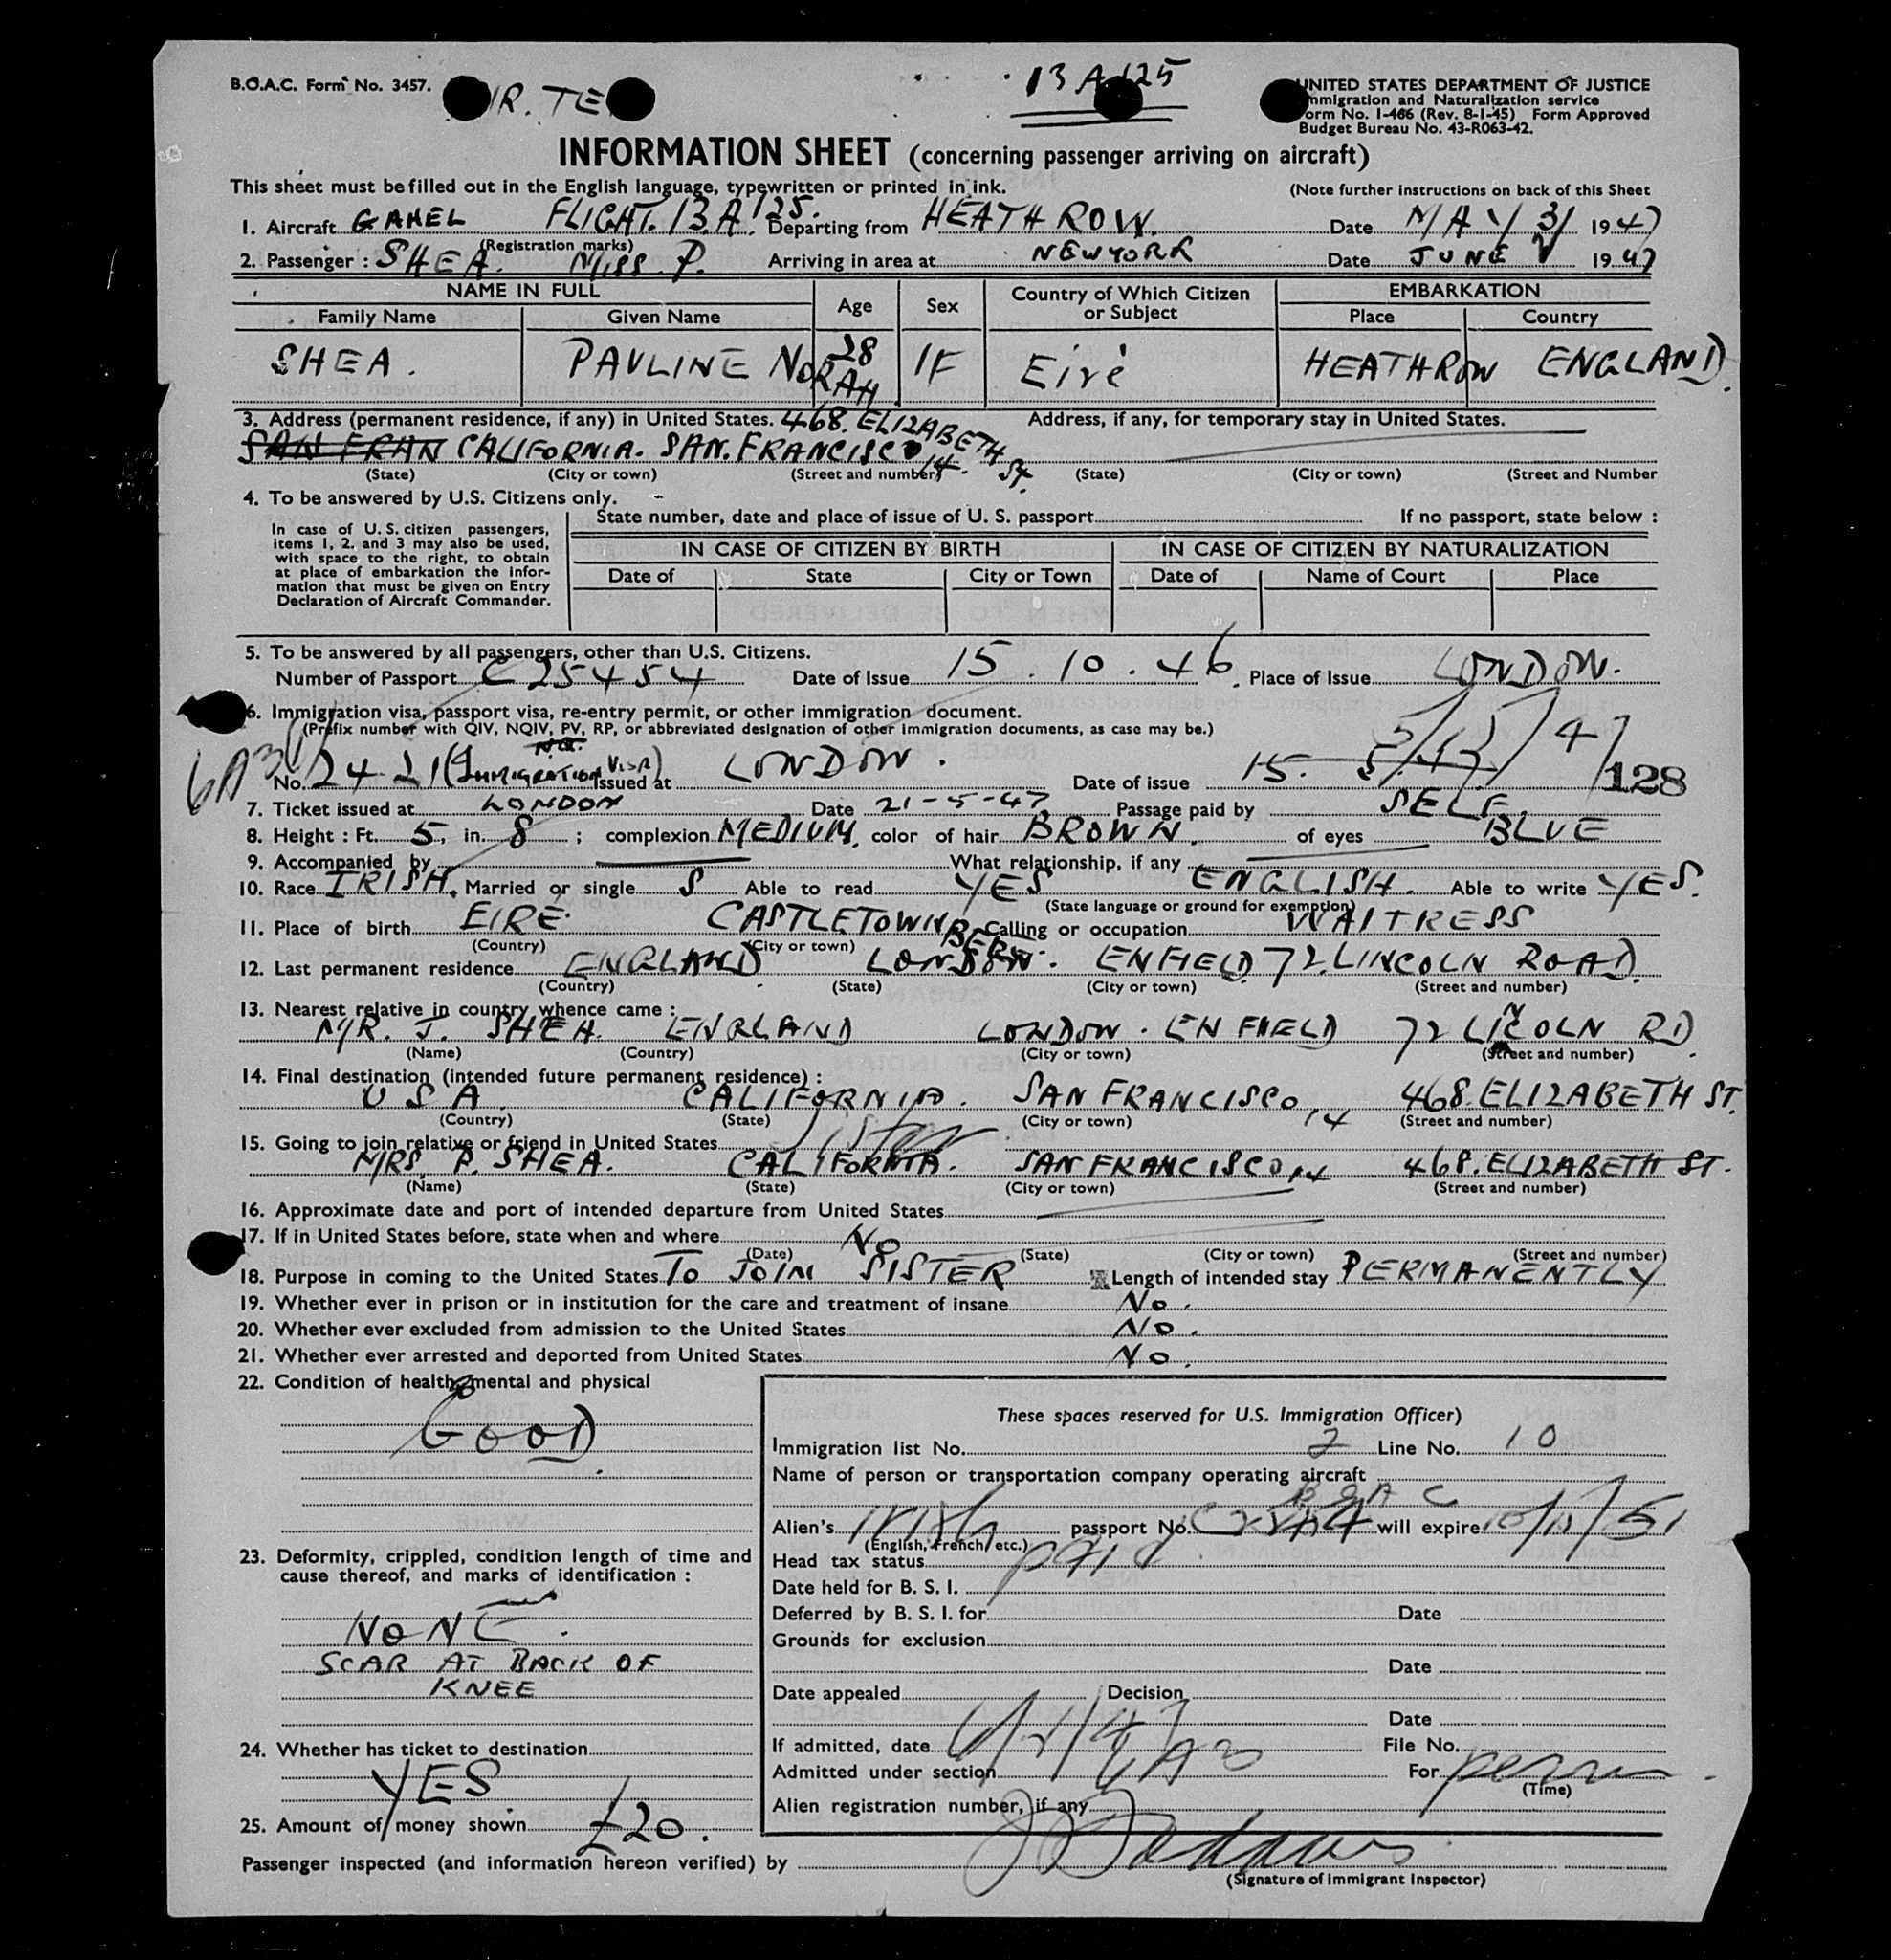 B.O.A.C. Form No. 3457.
13 A 125
UNITED STATES DEPARTMENT OF JUSTICE
mmigration and Naturalization service
orm No. 1-466 (Rev. 8-1-45) Form Approved
Budget Bureau No. 43-R063-42.
INFORMATION SHEET (concerning passenger arriving on aircraft)
This sheet must be filled out in the English language, typewritten or printed in ink. (Note further instructions on back of this Sheet
1. Aircraft GAHEL FLIGHT. 13.A 125. Departing from HEATH ROW. Date MAY 31 1947
(Registration marks)
2. Passenger : SHEA. Miss. P. Arriving in area at NEW YORK Date JUNE 1947
NAME IN FULL Age Sex Country of Which Citizen or Subject EMBARKATION
Family Name Given Name Place Country
SHEA. PAULINE NORAH. 28 F Eiré HEATHROW ENGLAND.
3. Address (permanent residence, if any) in United States. 468. ELIZABETH St. Address, if any, for temporary stay in United States.
SAN FRAN CALIFORNIA. SAN. FRANCISCO 14.
(State) (City or town) (Street and number) (State) (City or town) (Street and Number
4. To be answered by U.S. Citizens only. -
In case of U.S. citizen passengers, items 1, 2, and 3 may also be used, with space to the right, to obtain at place of embarkation the infor-mation that must be given on Entry Declaration of Aircraft Commander.
State number, date and place of issue of U. S. passport If no passport, state below :
IN CASE OF CITIZEN BY BIRTH IN CASE OF CITIZEN BY NATURALIZATION
Date of State City or Town Date of Name of Court Place
5. To be answered by all passengers, other than U.S. Citizens.
Number of Passport C 25454 Date of Issue 15. 10. 46. Place of Issue LONDON.
6. Immigration visa, passport visa, re-entry permit, or other immigration document.
(Prefix number with QIV, NQIV, PV, RP, or abbreviated designation of other immigration documents, as case may be.)
No. 2421 (IMMIGRATION VISA) Issued at LONDON. Date of issue 15. 5. 47 5/15/47 128
7. Ticket issued at LONDON Date 21-5-47 Passage paid by SELF.
8. Height : Ft. 5, in. 8 ; complexion MEDIUM, color of hair BROWN. of eyes BLUE
9. Accompanied by What relationship, if any
10. Race IRISH. Married or single S Able to read YES ENGLISH. Able to write YES.
(State language or ground for exemption)
11. Place of birth EIRE. CASTLETOWN BERE. Calling or occupation WAITRESS
(Country) (City or town)
12. Last permanent residence ENGLAND LONDON. ENFIELD 72. LINCOLN ROAD.
(Country) (State) (City or town) (Street and number)
13. Nearest relative in country whence came :
MR. J. SHEA. ENGLAND LONDON. ENFIELD 72 LINCOLN RD.
(Name) (Country) (City or town) (Street and number)
14. Final destination (intended future permanent residence) :
USA. CALIFORNIA. SAN FRANCISCO, 14 468. ELIZABETH ST.
(Country) (State) (City or town) (Street and number)
15. Going to join relative or friend in United States Sister
MRS. P. SHEA. CALIFORNIA. SAN FRANCISCO, 14 468. ELIZABETH ST.
(Name) (State) (City or town) (Street and number)
16. Approximate date and port of intended departure from United States
17. If in United States before, state when and where No
(Date) (State) (City or town) (Street and number)
18. Purpose in coming to the United States TO JOIN SISTER Length of intended stay PERMANENTLY
19. Whether ever in prison or in institution for the care and treatment of insane No.
20. Whether ever excluded from admission to the United States No.
21. Whether ever arrested and deported from United States No.
22. Condition of health, mental and physical
GOOD.
23. Deformity, crippled, condition length of time and cause thereof, and marks of identification :
NONE.
SCAR AT BACK OF
KNEE
24. Whether has ticket to destination
YES.
25. Amount of money shown £20.
These spaces reserved for U.S. Immigration Officer)
Immigration list No. 2 Line No. 10
Name of person or transportation company operating aircraft
BOAC
Alien's Irish passport No. will expire
(English, French, etc.)
Head tax status paid
Date held for B. S. I.
Deferred by B. S. I. for Date
Grounds for exclusion
Date
Date appealed Decision
Date
If admitted, date 6/1/47 File No.
Admitted under section For perm
(Time)
Alien registration number, if any
Passenger inspected (and information hereon verified) by
(Signature of Immigrant Inspector)